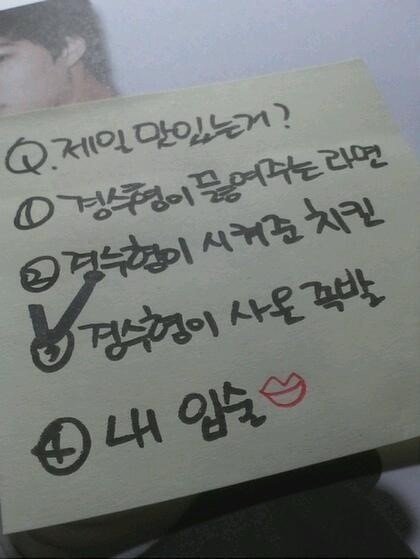 Q. 제일 맛있는거?
① 경수형이 끓여주는 라면
② 경수형이 시켜준 치킨
③ 경수형이 사온 족발
④ 내 입술